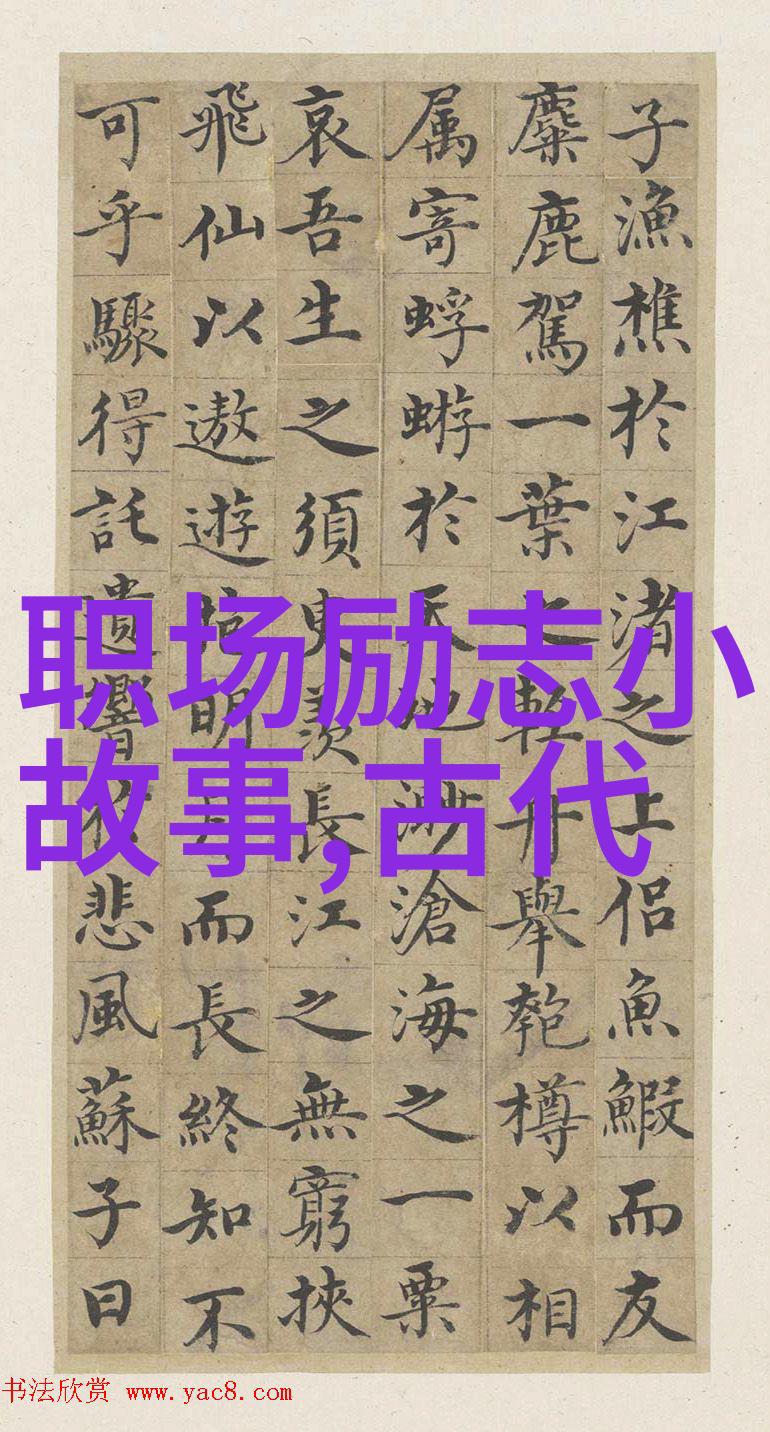 子漁樵於江渚之上侶魚鰕而友
麋鹿駕一葉之輕舟舉匏樽以相
属寄蜉蝣於天地渺滄海之一粟
哀吾生之須臾羨長江之無窮挾
飛仙以遨遊抱明月而長終知不
可乎驟得託遺響於悲風蘇子曰
职场励志小
故事,古代
书法欣赏 www.yac8.com